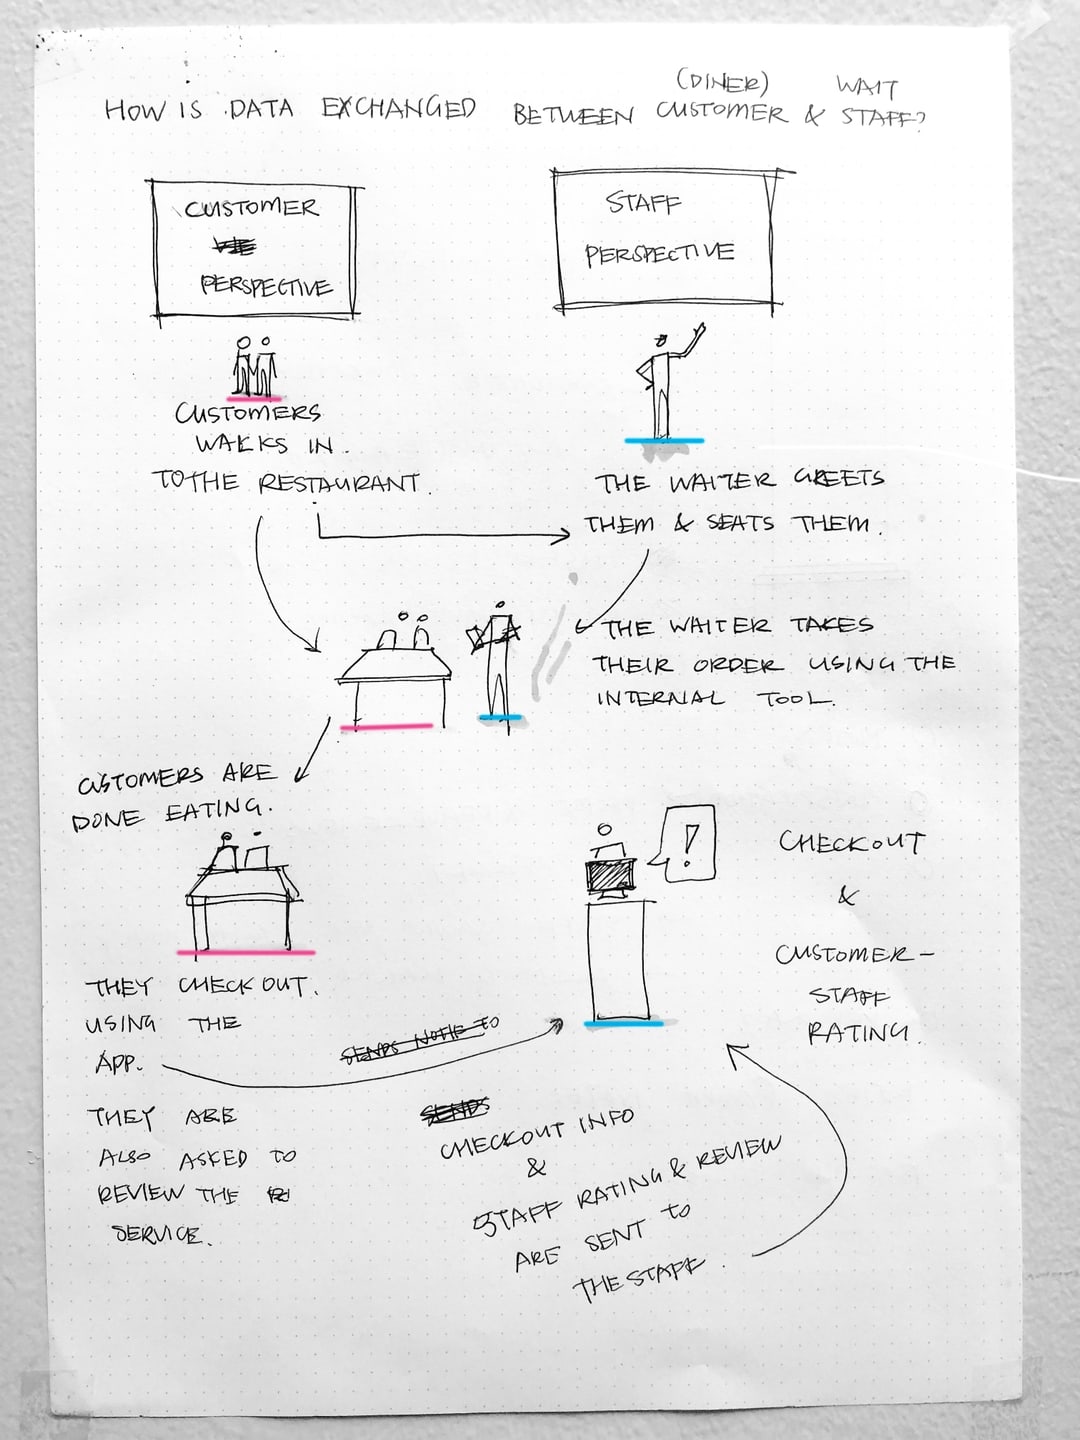 (DINER) WAIT
HOW IS DATA EXCHANGED BETWEEN CUSTOMER & STAFF?
CUSTOMER
PERSPECTIVE
STAFF
PERSPECTIVE
CUSTOMERS
WALKS IN.
TO THE RESTAURANT.
THE WAITER GREETS
THEM & SEATS THEM.
THE WAITER TAKES
THEIR ORDER USING THE
INTERNAL TOOL.
CUSTOMERS ARE
DONE EATING.
!
CHECKOUT
&
CUSTOMER-
STAFF
RATING.
THEY CHECK OUT.
USING THE
APP.
SENDS NOTIF TO
THEY ARE
ALSO ASKED TO
REVIEW THE
SERVICE.
SENDS
CHECKOUT INFO
&
STAFF RATING & REVIEW
ARE SENT TO
THE STAFF.